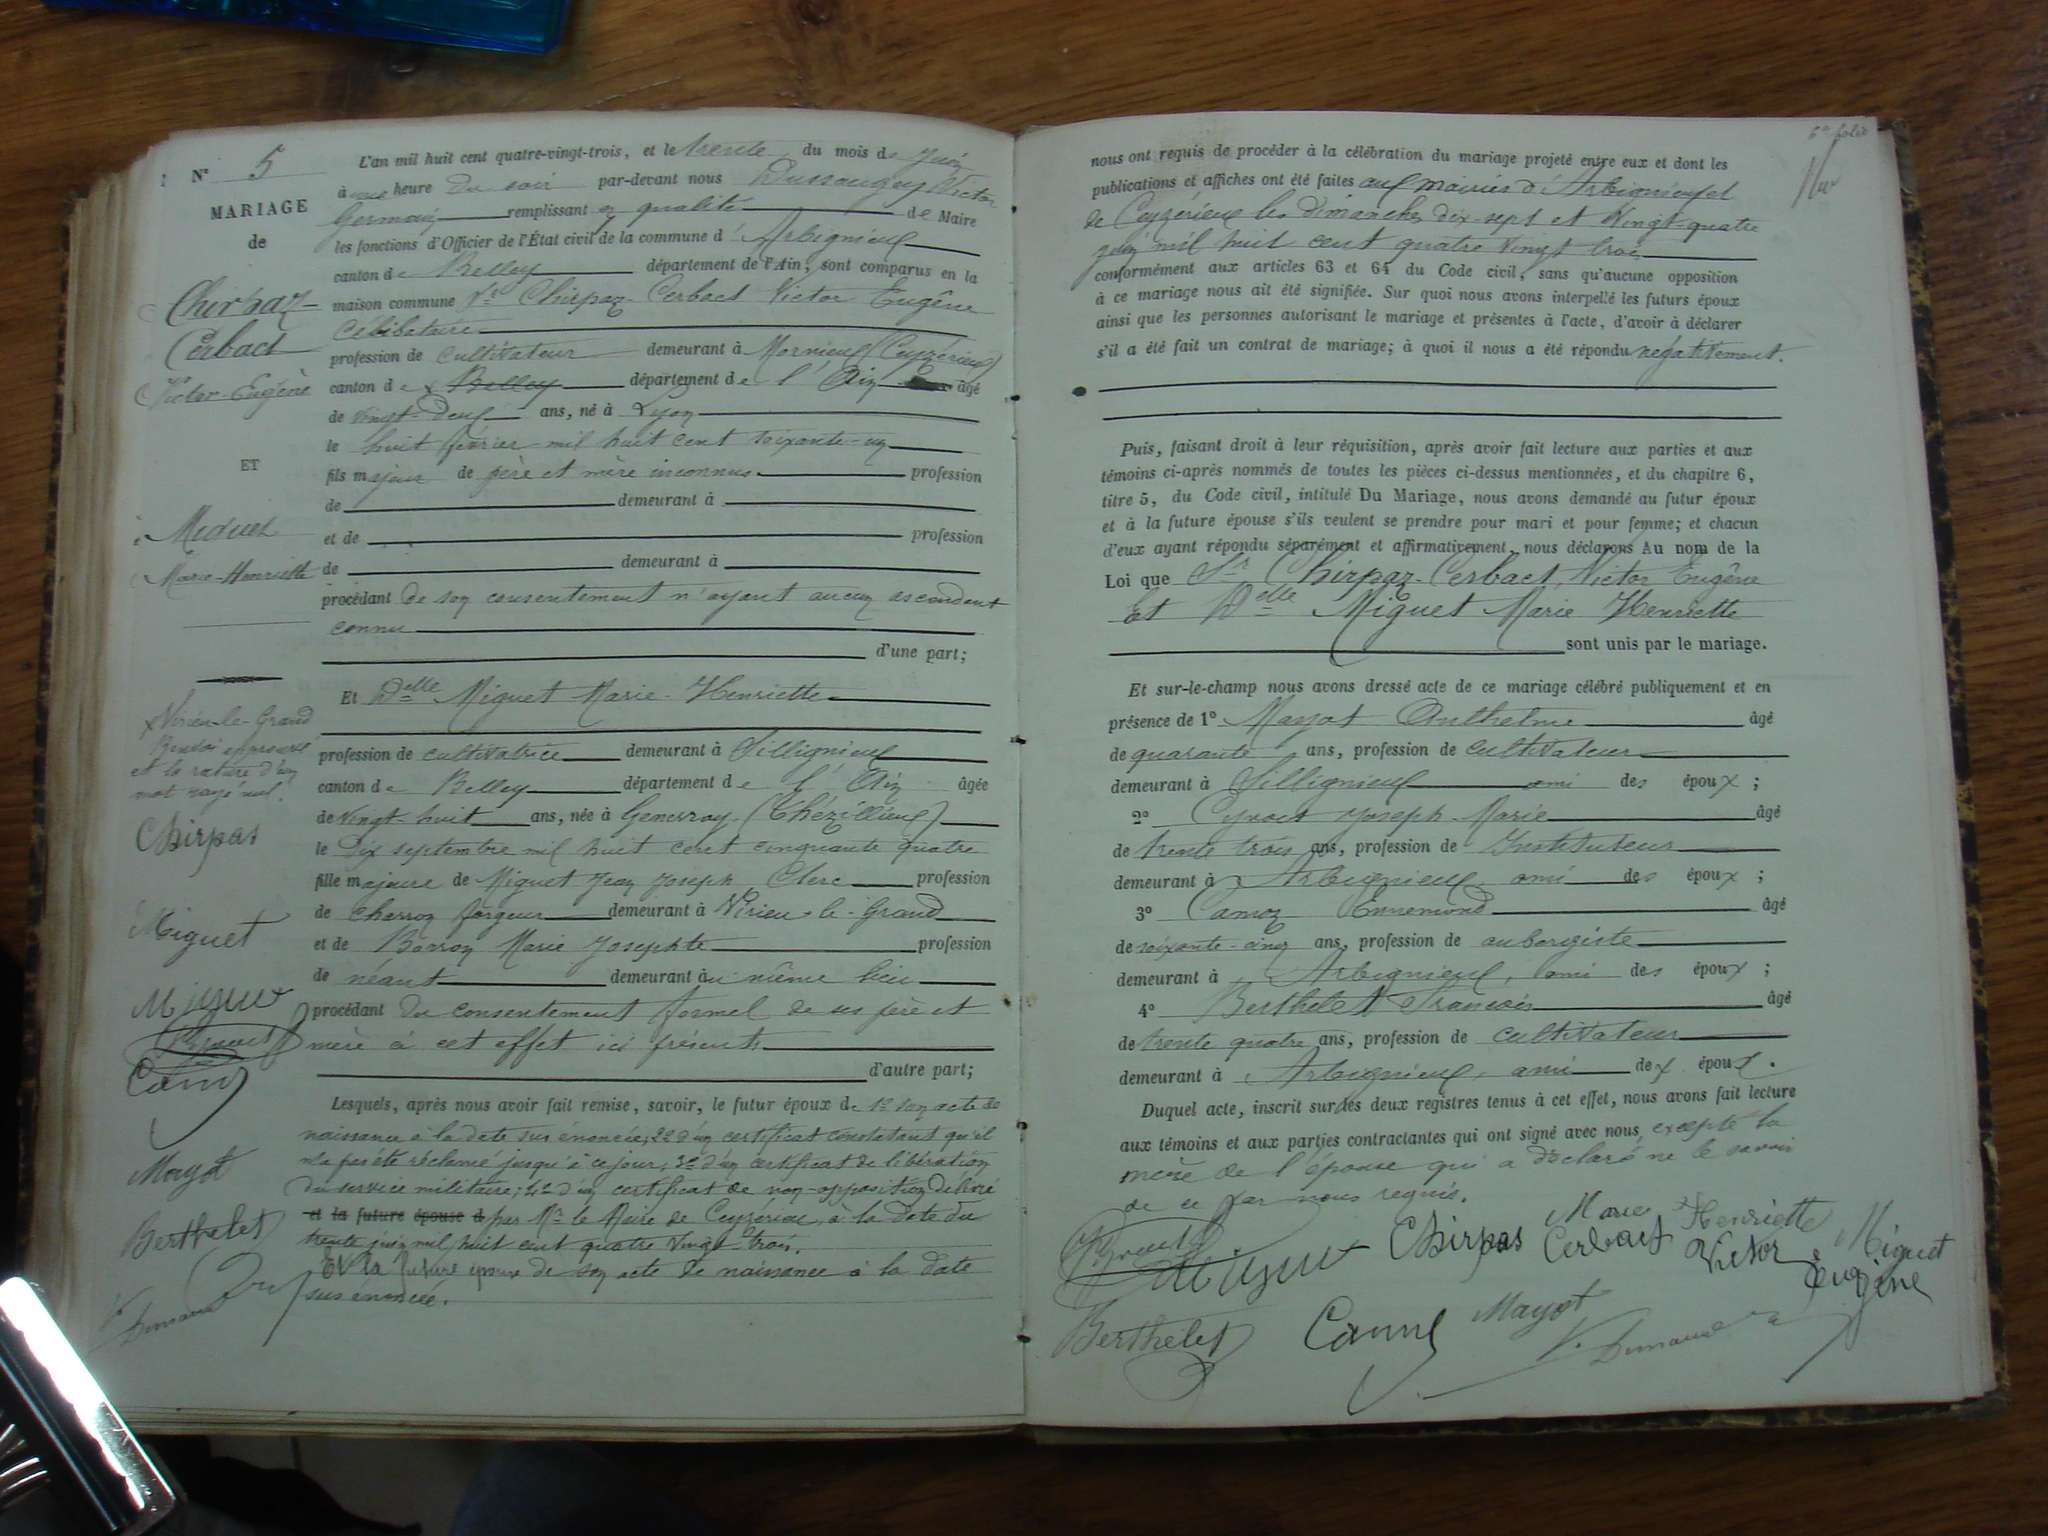 N° 5
MARIAGE
de
Chirpaz-
Cerbact
Victor-Eugène
ET
Miguet
Marie-Henriette
x Virieu-le-Grand
Renvoi approuvé
et la rature d'un
mot rayé nul.
Chirpas
Miguet
Miguet
Mayot
Berthelet
L'an mil huit cent quatre-vingt-trois, et le trente du mois de Juin
à une heure du soir par-devant nous Dussaugey Victor
Germain remplissant en qualité de Maire
les fonctions d'Officier de l'État civil de la commune d'Arbignieux
canton de Belley département de l'Ain, sont comparus en la
maison commune Sr Chirpaz-Cerbact Victor Eugêne
célibataire
profession de cultivateur demeurant à Mornieux (Ceyzérieux)
canton de x Belley département de l'Ain âgé
de vingt-deux ans, né à Lyon
le huit février mil huit cent soixante-un
fils majeur de père et mère inconnus profession
de demeurant à
et de profession
de demeurant à
procédant de son consentement n'ayant aucun ascendant
connu
d'une part;
Et Delle Miguet Marie-Henriette
profession de cultivatrice demeurant à Sillignieux
canton de Belley département de l'Ain âgée
de vingt-huit ans, née à Genevray (Thézillieux)
le dix septembre mil huit cent cinquante quatre
fille majeure de Miguet Jean Joseph Clerc profession
de charron forgeur demeurant à Virieu-le-Grand
et de Borron Marie Josephte profession
de néant demeurant au même lieu
procédant du consentement formel de ses père et
mère à cet effet ici présents
d'autre part;
Lesquels, après nous avoir fait remise, savoir, le futur époux de 1° son acte de
naissance à la date sus énoncée; 2° d'un certificat constatant qu'il
n'a pas été réclamé jusqu'à ce jour; 3° d'un certificat de libération
du service militaire; 4° d'un certificat de non-opposition délivré
et la future épouse d par Mr le Maire de Ceyzérieu, à la date du
trente juin mil huit cent quatre vingt trois.
Et la future épouse de son acte de naissance à la date
sus énoncée.
6e folio
nous ont requis de procéder à la célébration du mariage projeté entre eux et dont les
publications et affiches ont été faites aux mairies d'Arbignieux et
de Ceyzérieux les dimanches dix-sept et vingt-quatre
juin mil huit cent quatre vingt trois
conformément aux articles 63 et 64 du Code civil, sans qu'aucune opposition
à ce mariage nous ait été signifiée. Sur quoi nous avons interpellé les futurs époux
ainsi que les personnes autorisant le mariage et présentes à l'acte, d'avoir à déclarer
s'il a été fait un contrat de mariage; à quoi il nous a été répondu négativement.
Puis, faisant droit à leur réquisition, après avoir fait lecture aux parties et aux
témoins ci-après nommés de toutes les pièces ci-dessus mentionnées, et du chapitre 6,
titre 5, du Code civil, intitulé Du Mariage, nous avons demandé au futur époux
et à la future épouse s'ils veulent se prendre pour mari et pour femme; et chacun
d'eux ayant répondu séparément et affirmativement, nous déclarons Au nom de la
Loi que Sr Chirpaz-Cerbact, Victor Eugêne
Et Delle Miguet Marie Henriette
sont unis par le mariage.
Et sur-le-champ nous avons dressé acte de ce mariage célébré publiquement et en
présence de 1° Mayot Anthelme âgé
de quarante ans, profession de cultivateur
demeurant à Sillignieux ami des époux;
2° Joseph Marie âgé
de trente trois ans, profession de Instituteur
demeurant à Arbignieux, ami des époux;
3° Ennemond âgé
de soixante-cinq ans, profession de aubergiste
demeurant à Arbignieux, ami des époux;
4° Berthelet François âgé
de trente quatre ans, profession de cultivateur
demeurant à Arbignieux, ami des époux.
Duquel acte, inscrit sur les deux registres tenus à cet effet, nous avons fait lecture
aux témoins et aux parties contractantes qui ont signé avec nous excepté la
mère de l'épouse qui a déclaré ne le savoir
de ce par nous requis.
Marie Henriette Miguet
Miguet Chirpas Cerbact Victor eugène
Berthelet Mayot